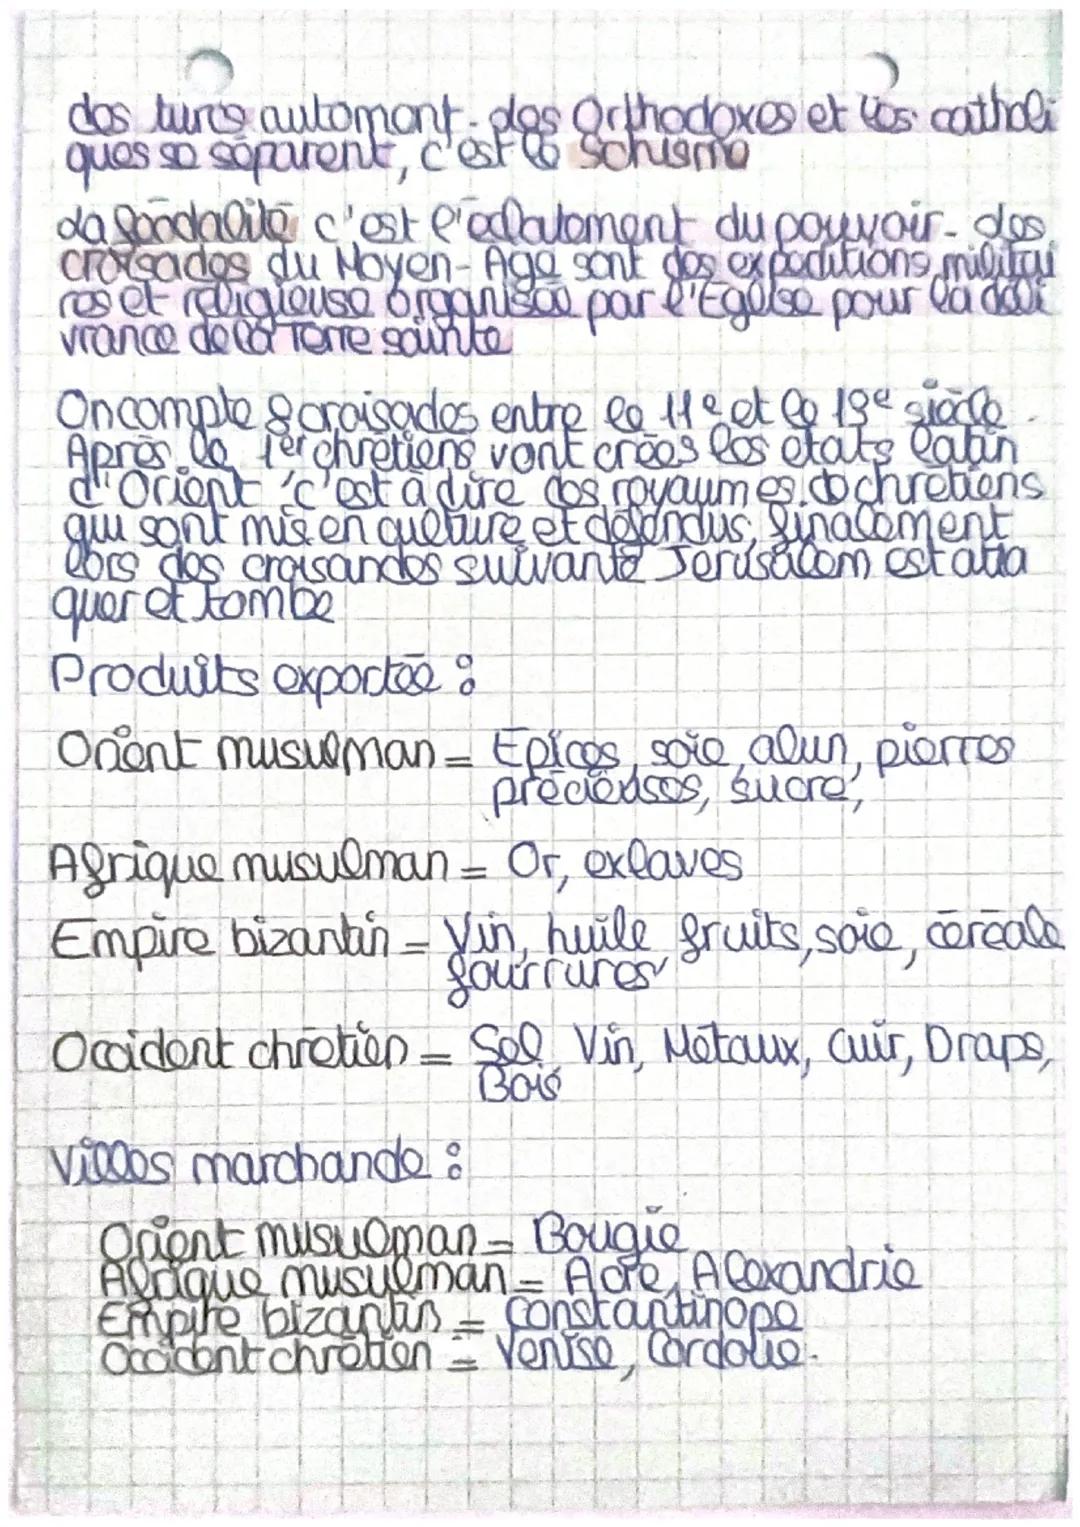 des turcs automant. des Orthodoxes et les catholi
ques se séparent, c'est le Schisme
La féodalité c'est l'éclatement du pouvoir. des
croisades du Moyen-Age sont des expéditions militai
res et religieuse organisée par l'Eglise pour la déli
vrance de la Terre sainte
On compte 8 croisades entre le 11e et le 13e siècle.
Après la 1er chrétiens vont crées les états latin
d'Orient 'c'est à dire des royaumes de chrétiens
qui sont mis en culture et défendus, finalement
lors des croisandes suivante Jerusalem est atta
quer et tombe
Produits exportée :
Orient musulman = Epices, soie, alun, pierres
précieuses, sucre,
Afrique musulman = Or, exlaves
Empire bizantin = Vin, huile fruits, soie, céréale
fourrures
Occident chrétien = Sel Vin, Métaux, Cuir, Draps,
Bois
Villes marchande :
Orient musulman = Bougie
Afrique musulman = Acre, Alexandrie
Empire bizantin = Constantinope
Occident chrétien = Venise, Cordoue.